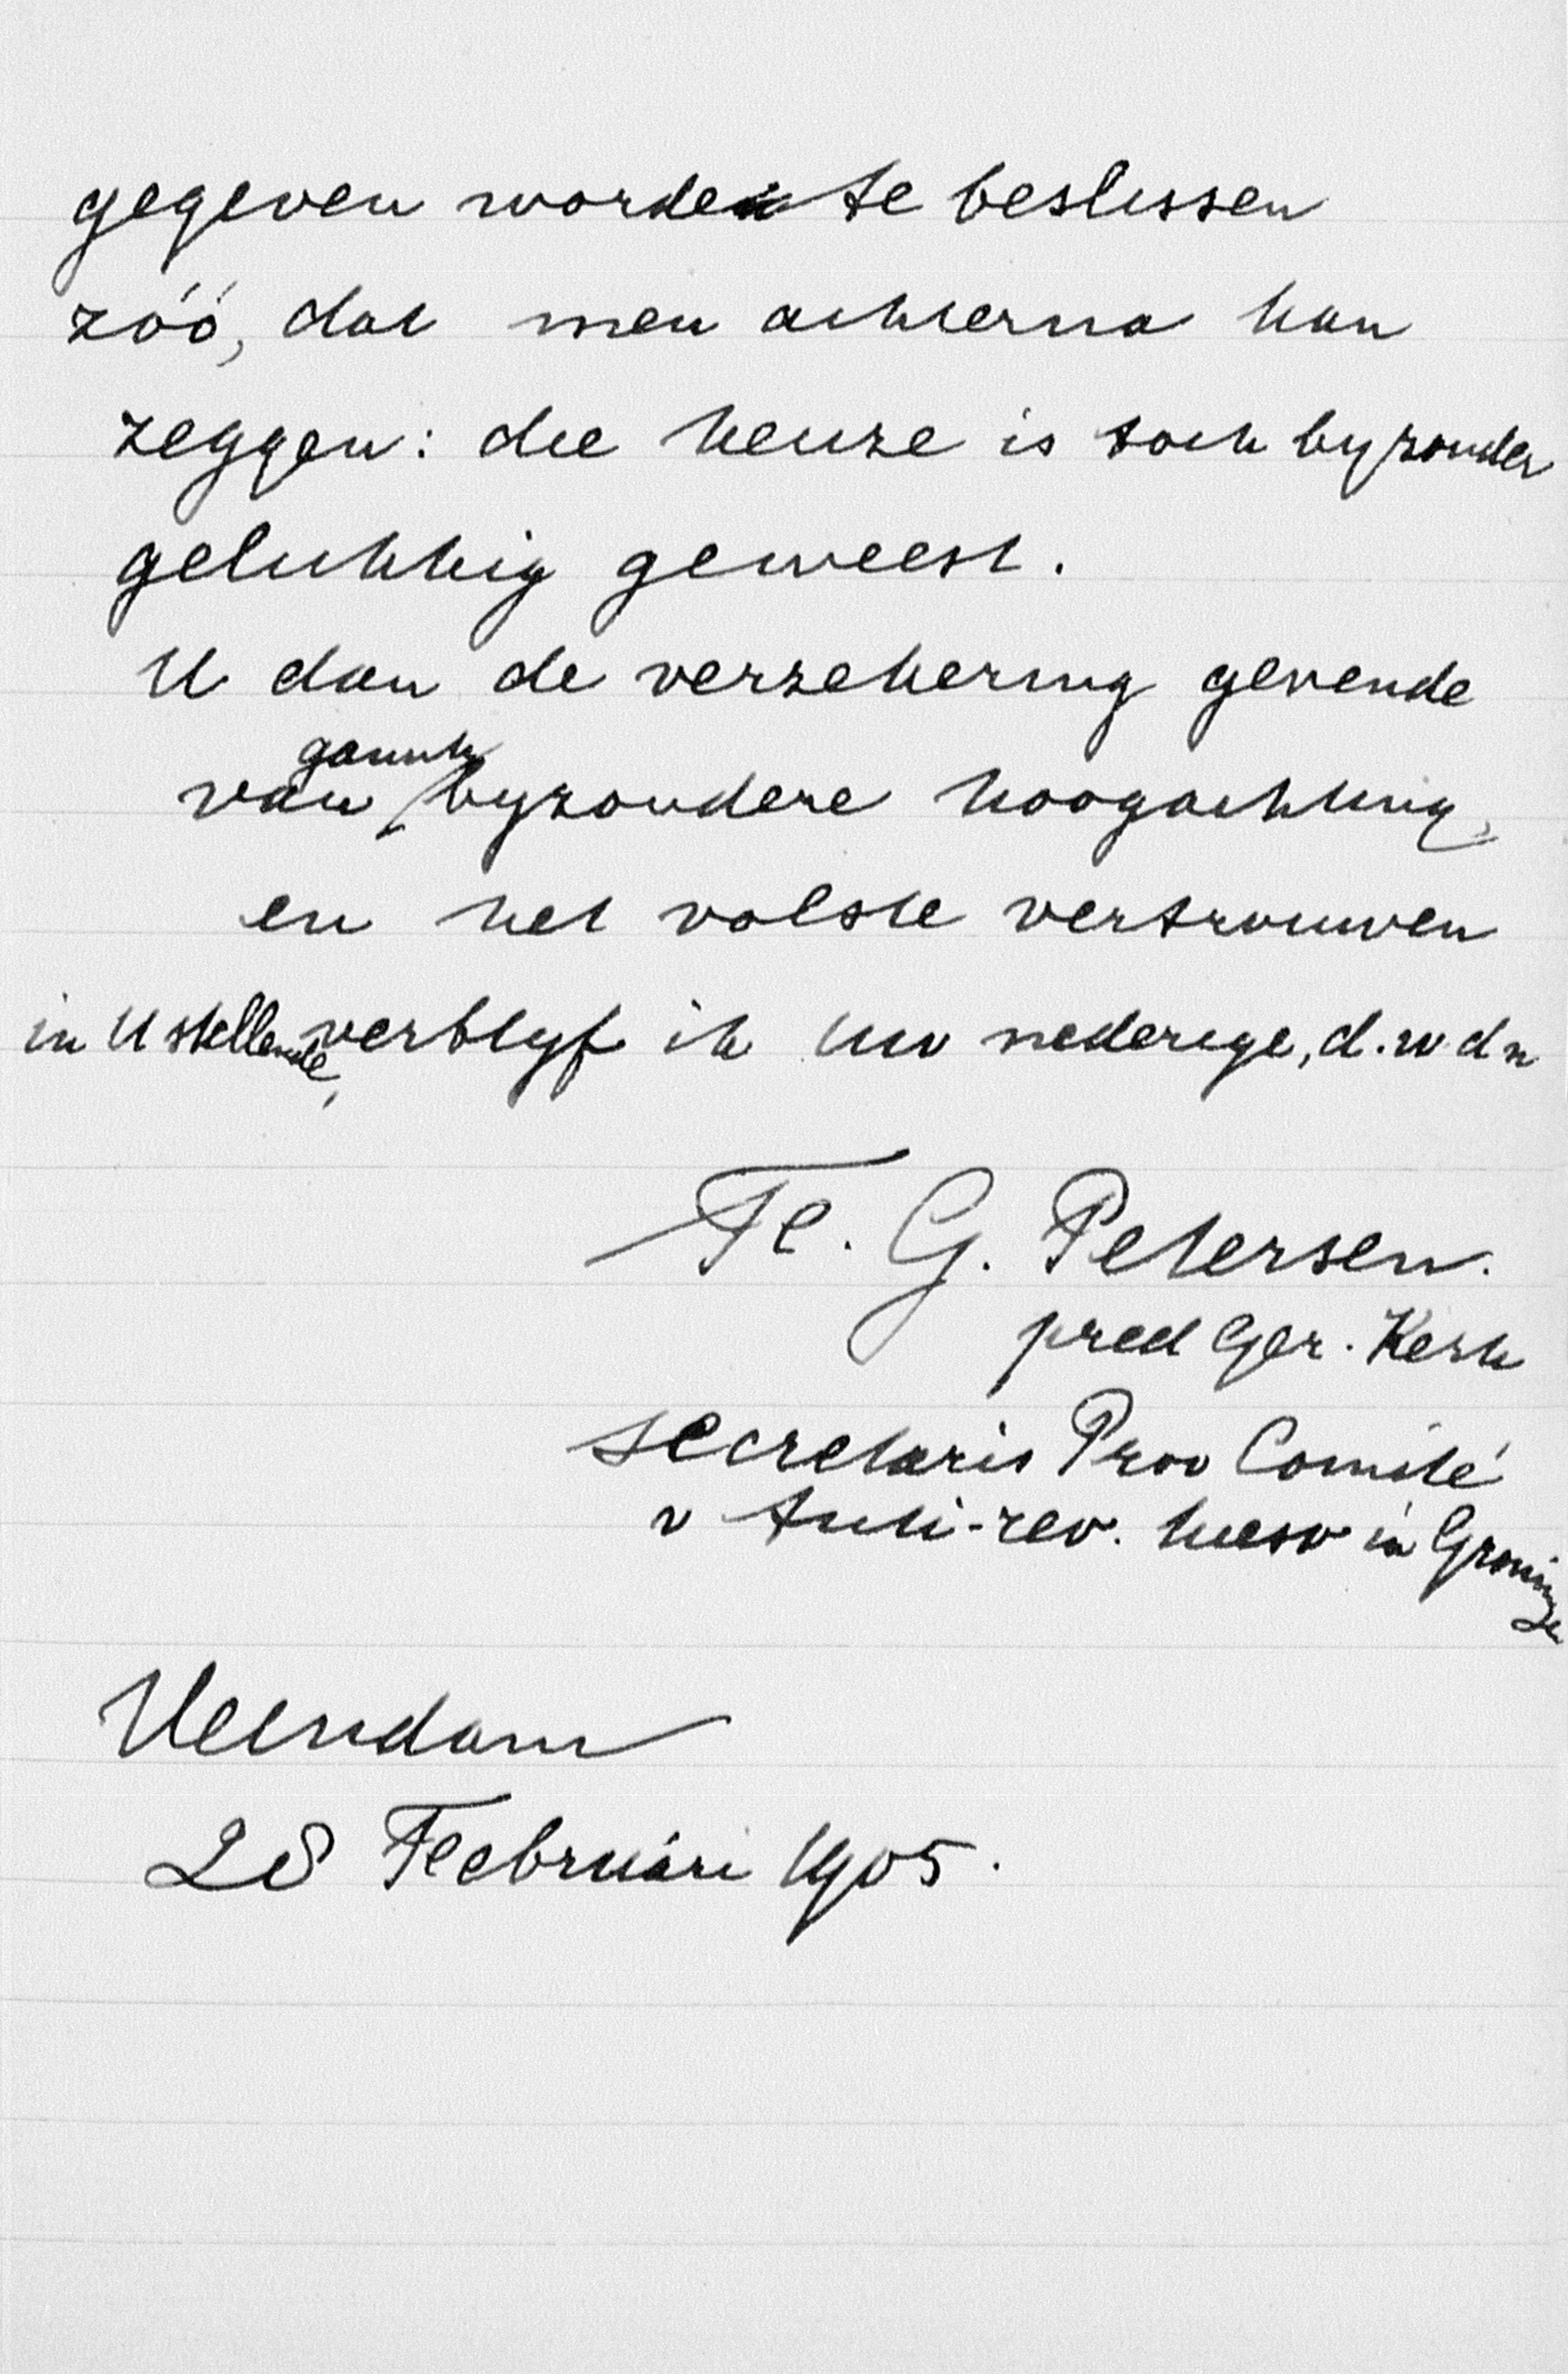 gegeven worden te beslissen
zóó, dat men achterna kan
zeggen: die keuze is toch byzonder
gelukkig geweest.
U dan de verzekering gevende
van gansch byzondere hoogachting,
en het volste vertrouwen
in U stellende, verblyf ik Uw nederige, d.w.dn
Fe. G. Petersen.
pred Ger. Kerk
secretaris Prov Comité
v Anti-rev. kiesv in Groningen
Veendam
28 Februari 1905.